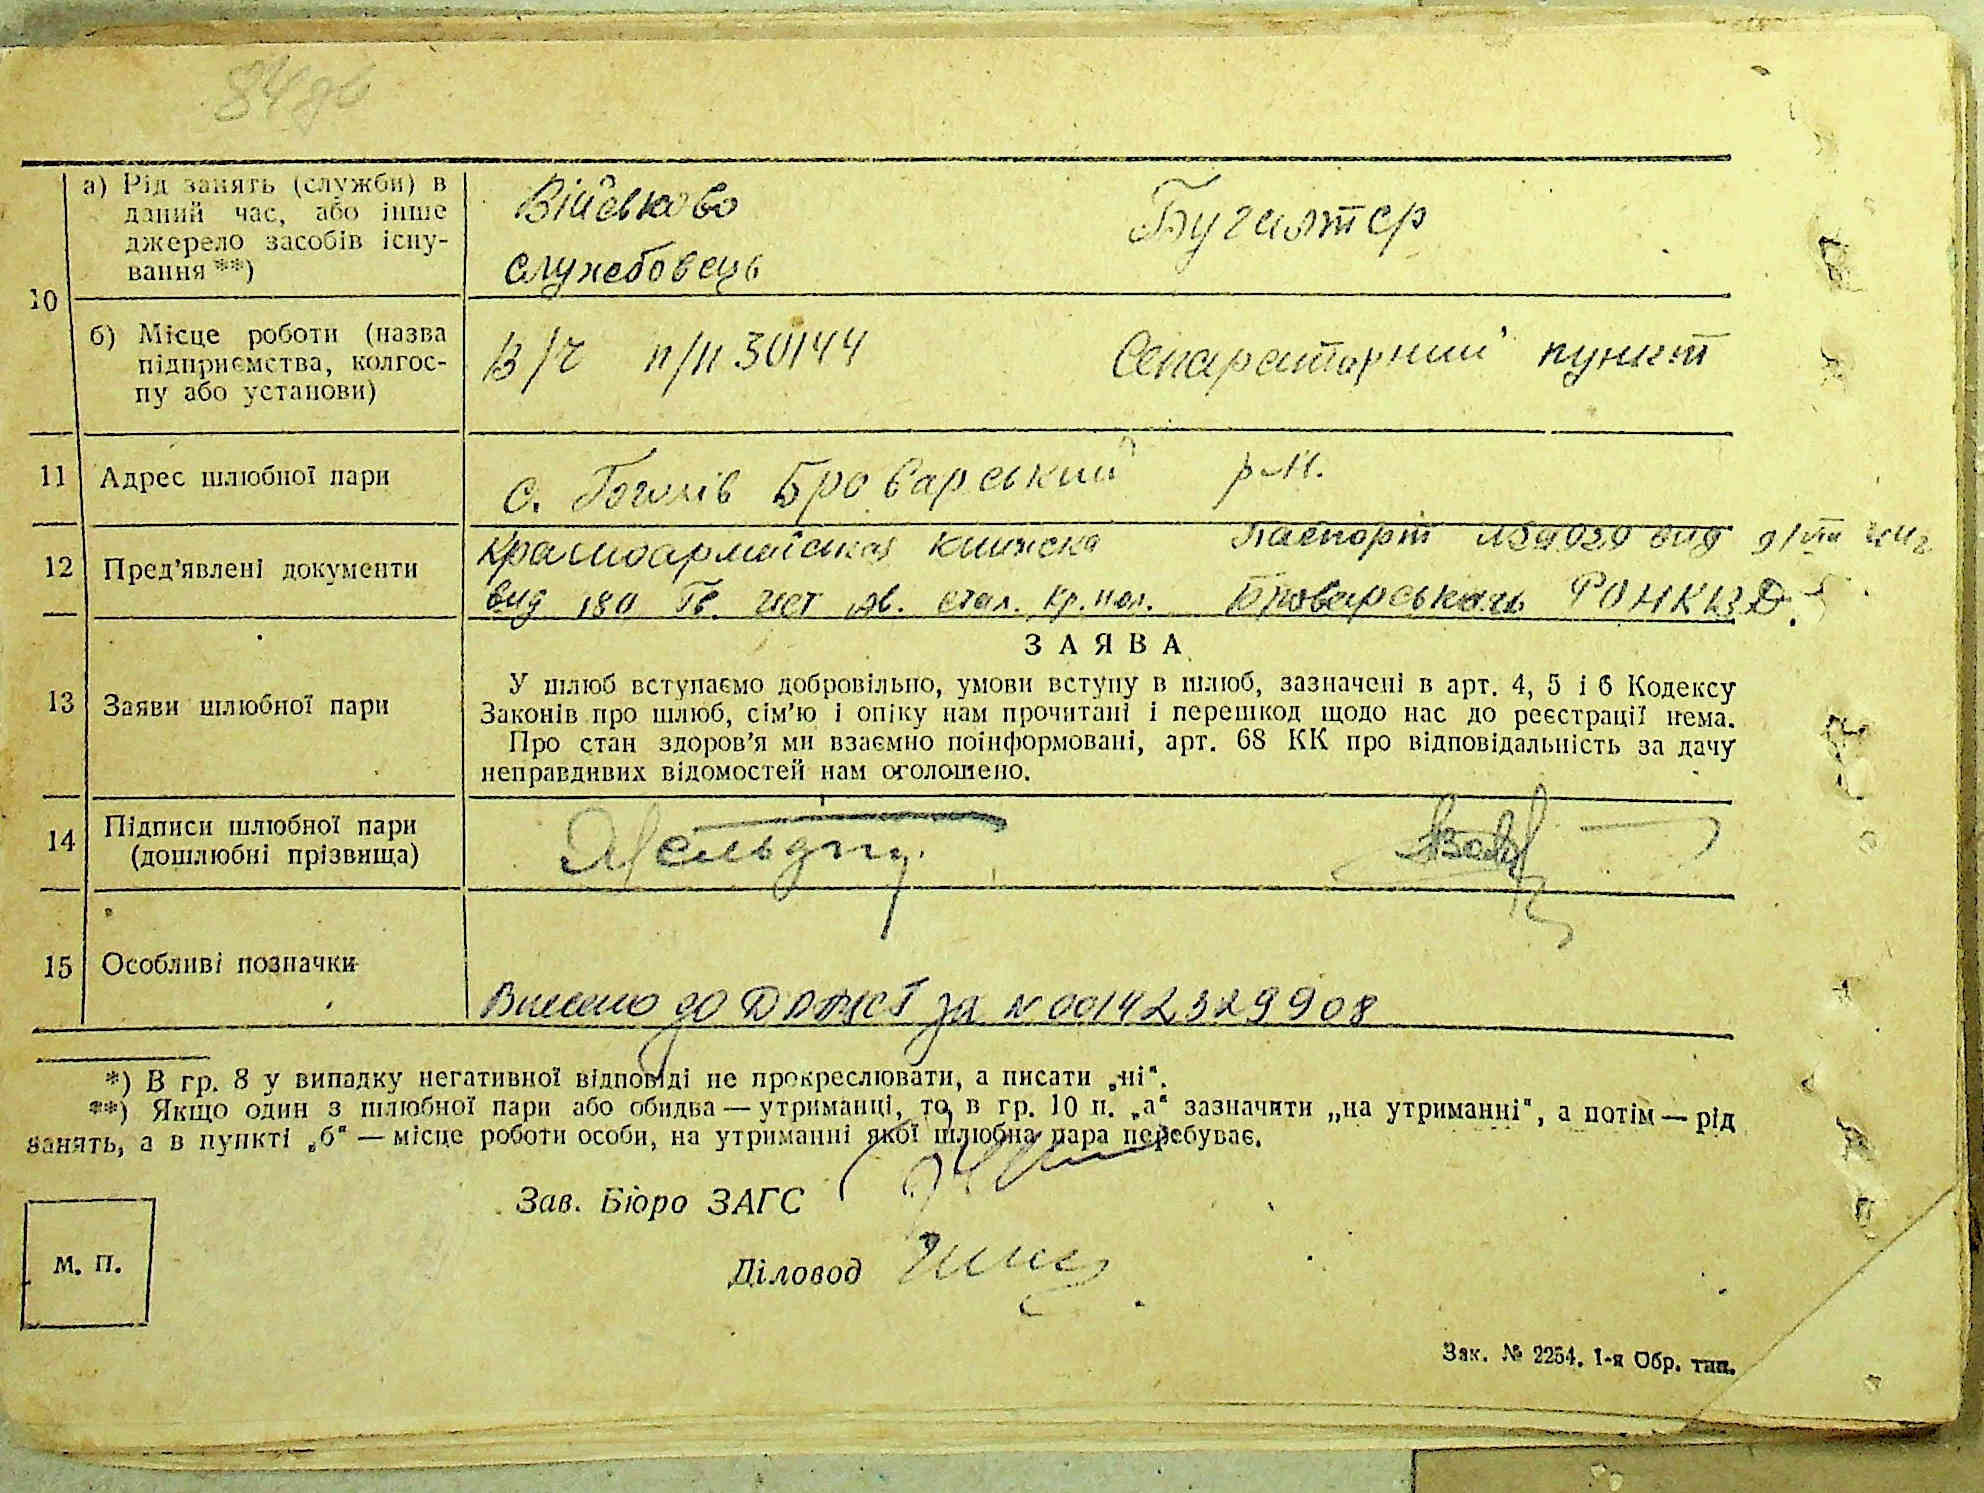 84 зв
10
а) Рід занять (служби) в
даний час, або інше
джерело засобів існу-
вання **)
Військово
службовець
Бугалтер
б) Місце роботи (назва
підприємства, колгос-
пу або установи)
В/ч п/п 30144
Сепараторний пункт
11 Адрес шлюбної пари
с. Гоголів Броварський р-н.
12 Пред'явлені документи
Красноармейская книжка
вид 180 Гв. ист ав. стал. Кр.
Паспорт вид
Броварським РОНКВД.
ЗАЯВА
13 Заяви шлюбної пари
У шлюб вступаємо добровільно, умови вступу в шлюб, зазначені в арт. 4, 5 і 6 Кодексу
Законів про шлюб, сім'ю і опіку нам прочитані і перешкод щодо нас до реєстрації нема.
Про стан здоров'я ми взаємно поінформовані, арт. 68 КК про відповідальність за дачу
неправдивих відомостей нам оголошено.
14 Підписи шлюбної пари
(дошлюбні прізвища)
15 Особливі позначки
Внесено до за N 00142329908
*) В гр. 8 у випадку негативної відповіді не прокреслювати, а писати „ні“.
**) Якщо один з шлюбної пари або обидва — утриманці, то в гр. 10 п. „а“ зазначити „на утриманні“, а потім — рід
занять, а в пункті „б“ — місце роботи особи, на утриманні якої шлюбна пара перебуває.
Зав. Бюро ЗАГС
М. П.
Діловод
Зак. № 2254. 1-я Обр. тип.